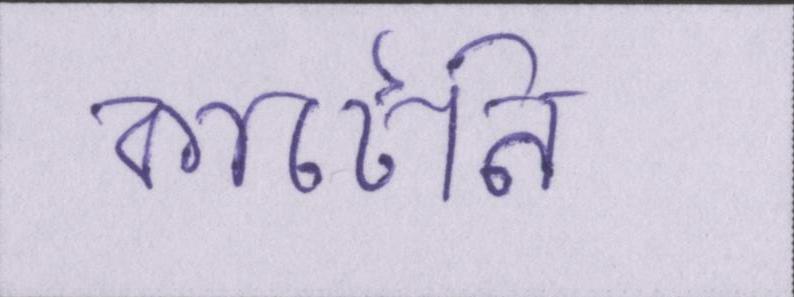 কাটেনি